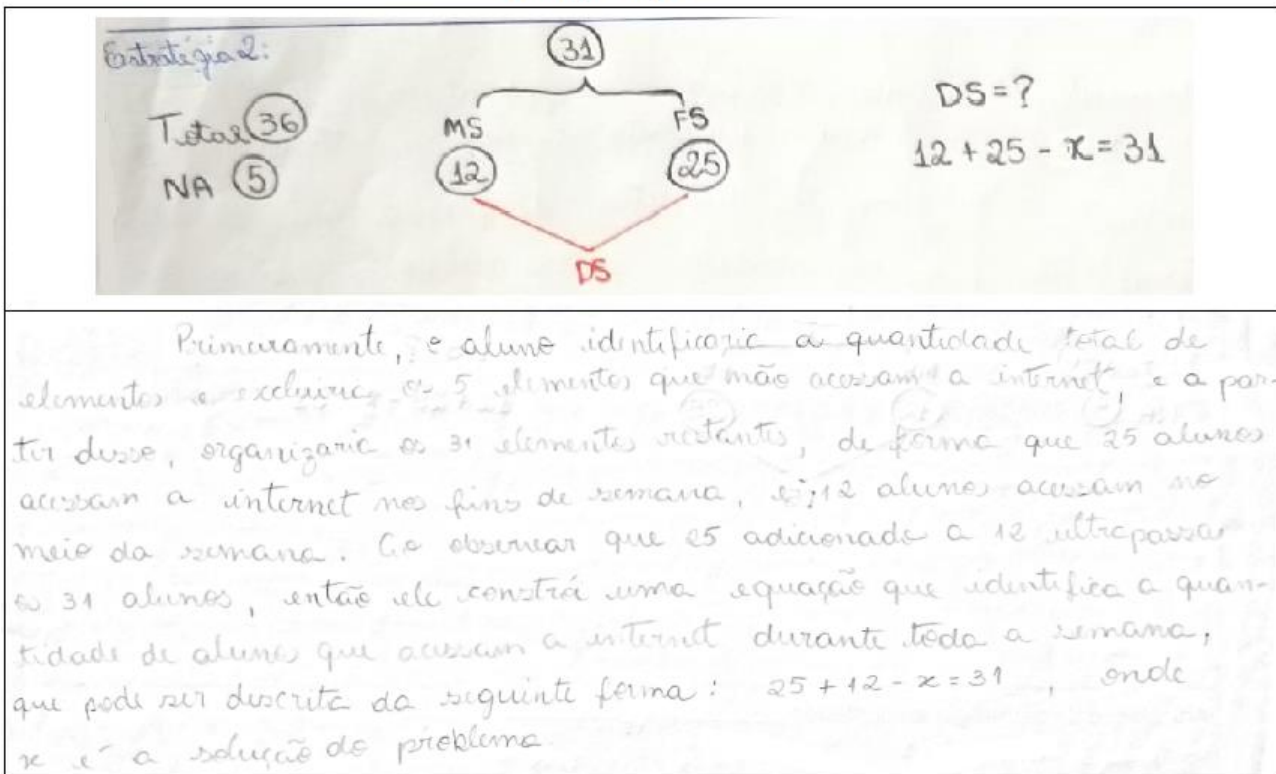 Estratégia 2:
31
Total 36
NA 5
MS
12
FS
25
DS
DS = ?
12 + 25 - x = 31
Primeiramente, o aluno identificaria a quantidade total de
elementos e excluiria os 5 elementos que não acessam a internet, e a par-
tir disso, organizaria os 31 elementos restantes, de forma que 25 alunos
acessam a internet nos fins de semana, e 12 alunos acessam no
meio da semana. Ao observar que 25 adicionado a 12 ultrapassa
os 31 alunos, então ele constrá uma equação que identifica a quan-
tidade de alunos que acessam a internet durante toda a semana,
que pode ser descrita da seguinte forma: 25 + 12 - x = 31, onde
x é a solução do problema.